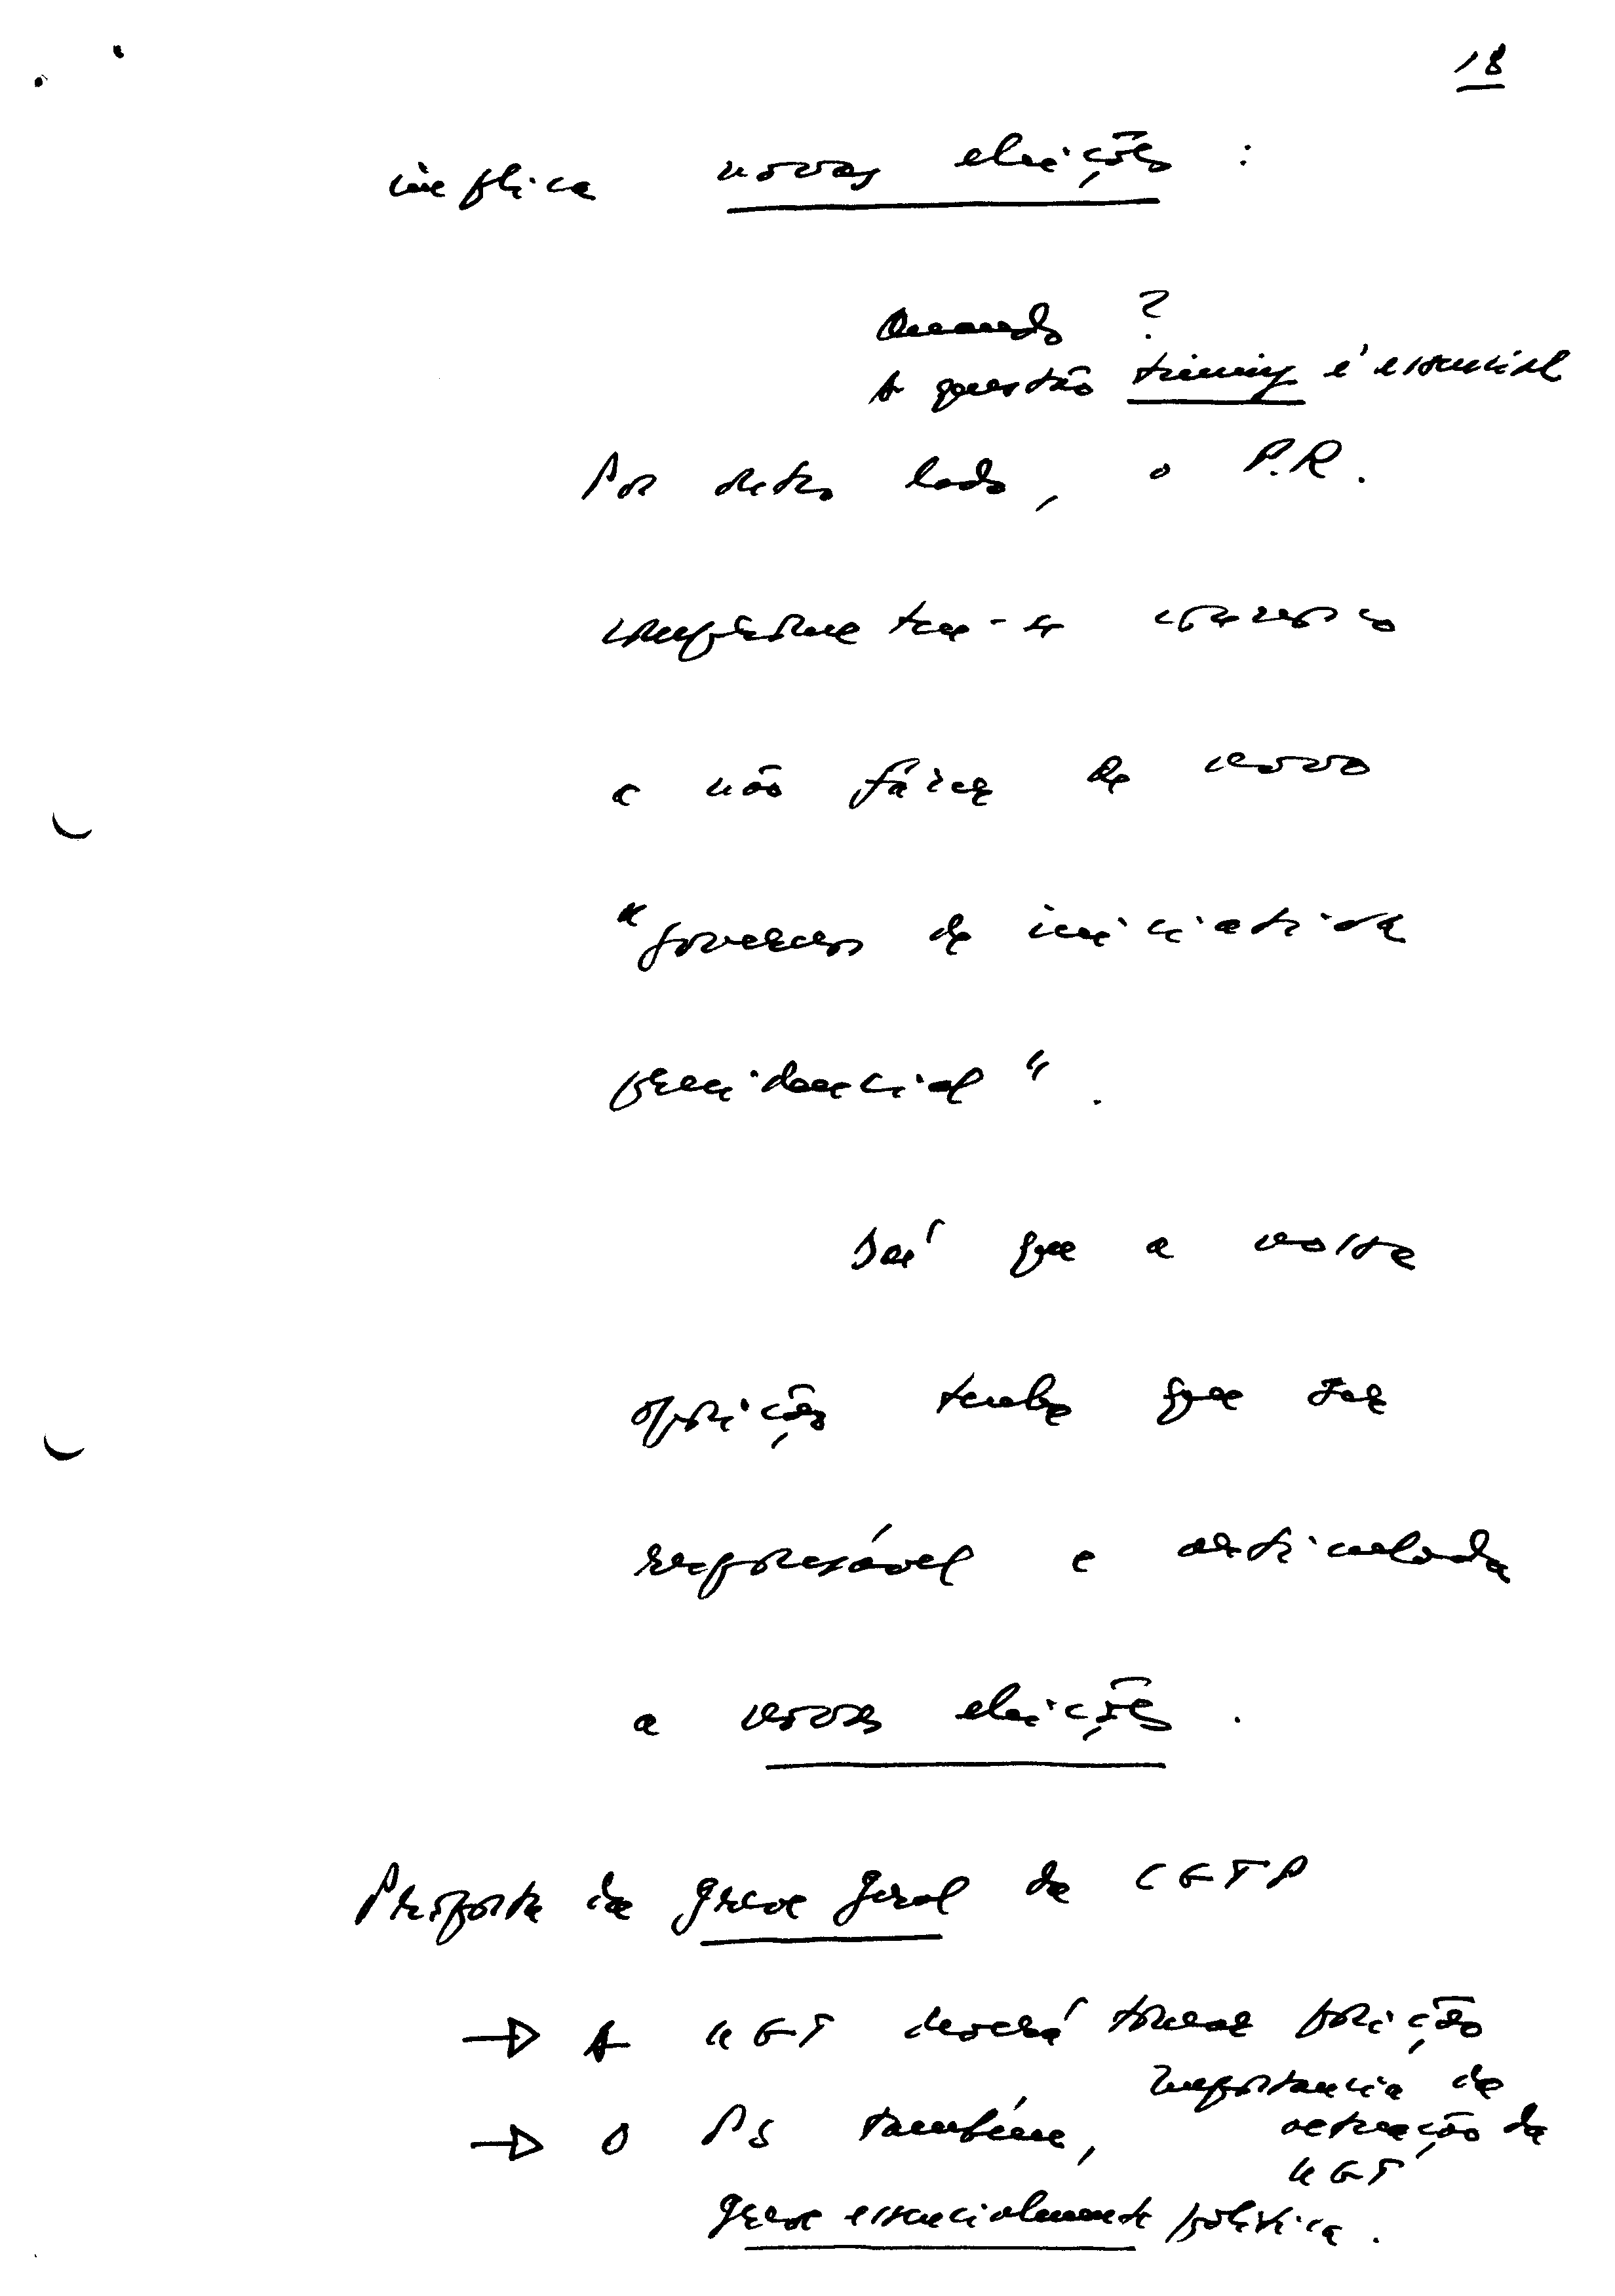 18
implica novas eleições :
Quando ?
A questão timing é essencial
Por outro lado, o P.R.
comprometeu-se connosco
a não fazer de novo
"governos de iniciativa
presidencial".
Daí que a nossa
oposição tenha que ser
responsável e articulada
a novas eleições.
Proposta de greve geral da CGTP
→ A UGT deverá tomar posição
→ O PS também,
Importancia da
actuação da
UGT
Greve essencialmente política.